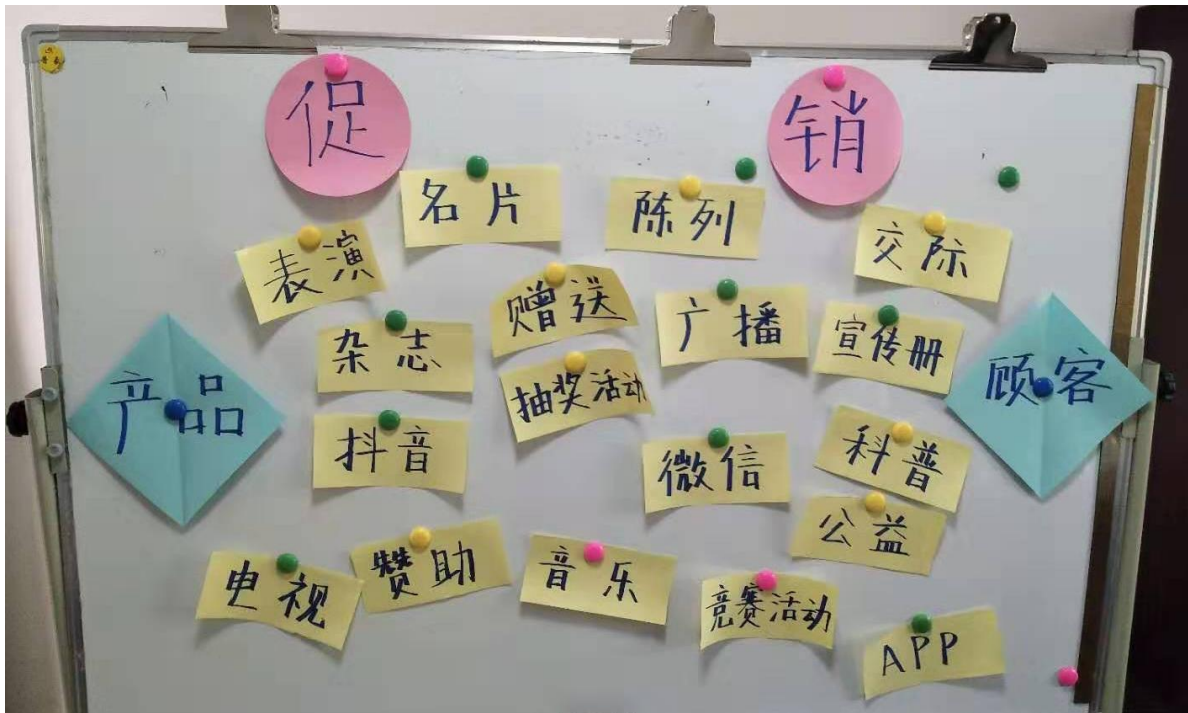 促 销
名片
陈列
交际
表演
赠送
广播
宣传册
杂志
抽奖活动
产品
顾客
抖音
微信
科普
公益
电视
赞助
音乐
竞赛活动
APP